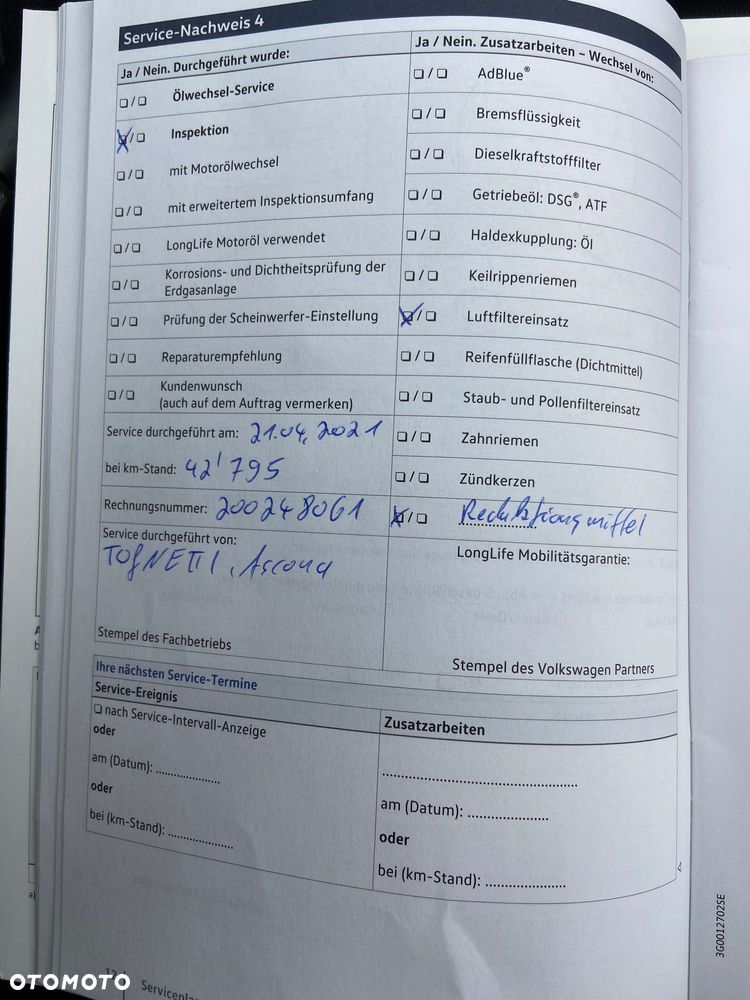 Service-Nachweis 4
Ja / Nein. Durchgeführt wurde:
❏ / ❏ Ölwechsel-Service
❏ / ❏ Inspektion
❏ / ❏ mit Motorölwechsel
❏ / ❏ mit erweitertem Inspektionsumfang
❏ / ❏ LongLife Motoröl verwendet
❏ / ❏ Korrosions- und Dichtheitsprüfung der
Erdgasanlage
❏ / ❏ Prüfung der Scheinwerfer-Einstellung
❏ / ❏ Reparaturempfehlung
❏ / ❏ Kundenwunsch
(auch auf dem Auftrag vermerken)
Service durchgeführt am: 21.04.2021
bei km-Stand: 42'795
Rechnungsnummer: 200248061
Service durchgeführt von:
TOGNETTI, Ascona
Stempel des Fachbetriebs
Ja / Nein. Zusatzarbeiten – Wechsel von:
❏ / ❏ AdBlue®
❏ / ❏ Bremsflüssigkeit
❏ / ❏ Dieselkraftstofffilter
❏ / ❏ Getriebeöl: DSG®, ATF
❏ / ❏ Haldexkupplung: Öl
❏ / ❏ Keilrippenriemen
❏ / ❏ Luftfiltereinsatz
❏ / ❏ Reifenfüllflasche (Dichtmittel)
❏ / ❏ Staub- und Pollenfiltereinsatz
❏ / ❏ Zahnriemen
❏ / ❏ Zündkerzen
❏ / ❏ Reduktionsmittel
LongLife Mobilitätsgarantie:
Stempel des Volkswagen Partners
Ihre nächsten Service-Termine
Service-Ereignis
❏ nach Service-Intervall-Anzeige
oder
am (Datum): ....................
oder
bei (km-Stand): ....................
Zusatzarbeiten
............................................................
am (Datum): ....................
oder
bei (km-Stand): ....................
3G0012702SE
a)
12
OTOMOTO